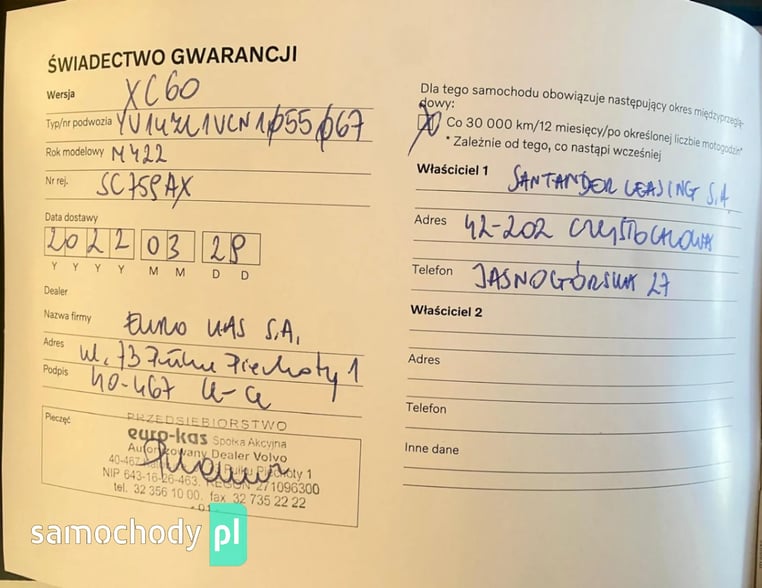 ŚWIADECTWO GWARANCJI
Wersja XC60
Typ/nr podwozia YV1UZL1VCN1055067
Rok modelowy MY22
Nr rej. SC759AX
Data dostawy
2022 03 29
Y Y Y Y M M D D
Dealer
Nazwa firmy EURO KAS S.A.
Adres ul. 73 Pułku Piechoty 1
Podpis 40-467 K-ce
Pieczęć
PRZEDSIĘBIORSTWO
euro-kas Spółka Akcyjna
Autoryzowany Dealer Volvo
40-467 Pułku Piechoty 1
NIP 643-16-26-463, REGON 271096300
tel. 32 356 10 00, fax 32 735 22 22
- 01 -
Dla tego samochodu obowiązuje następujący okres międzyprzeglą-
dowy:
Co 30 000 km/12 miesięcy/po określonej liczbie motogodzin*
* Zależnie od tego, co nastąpi wcześniej
Właściciel 1 SANTANDER LEASING S.A.
Adres 42-202 CZĘSTOCHOWA
Telefon JASNOGÓRSKA 27
Właściciel 2
Adres
Telefon
Inne dane
samochody pl